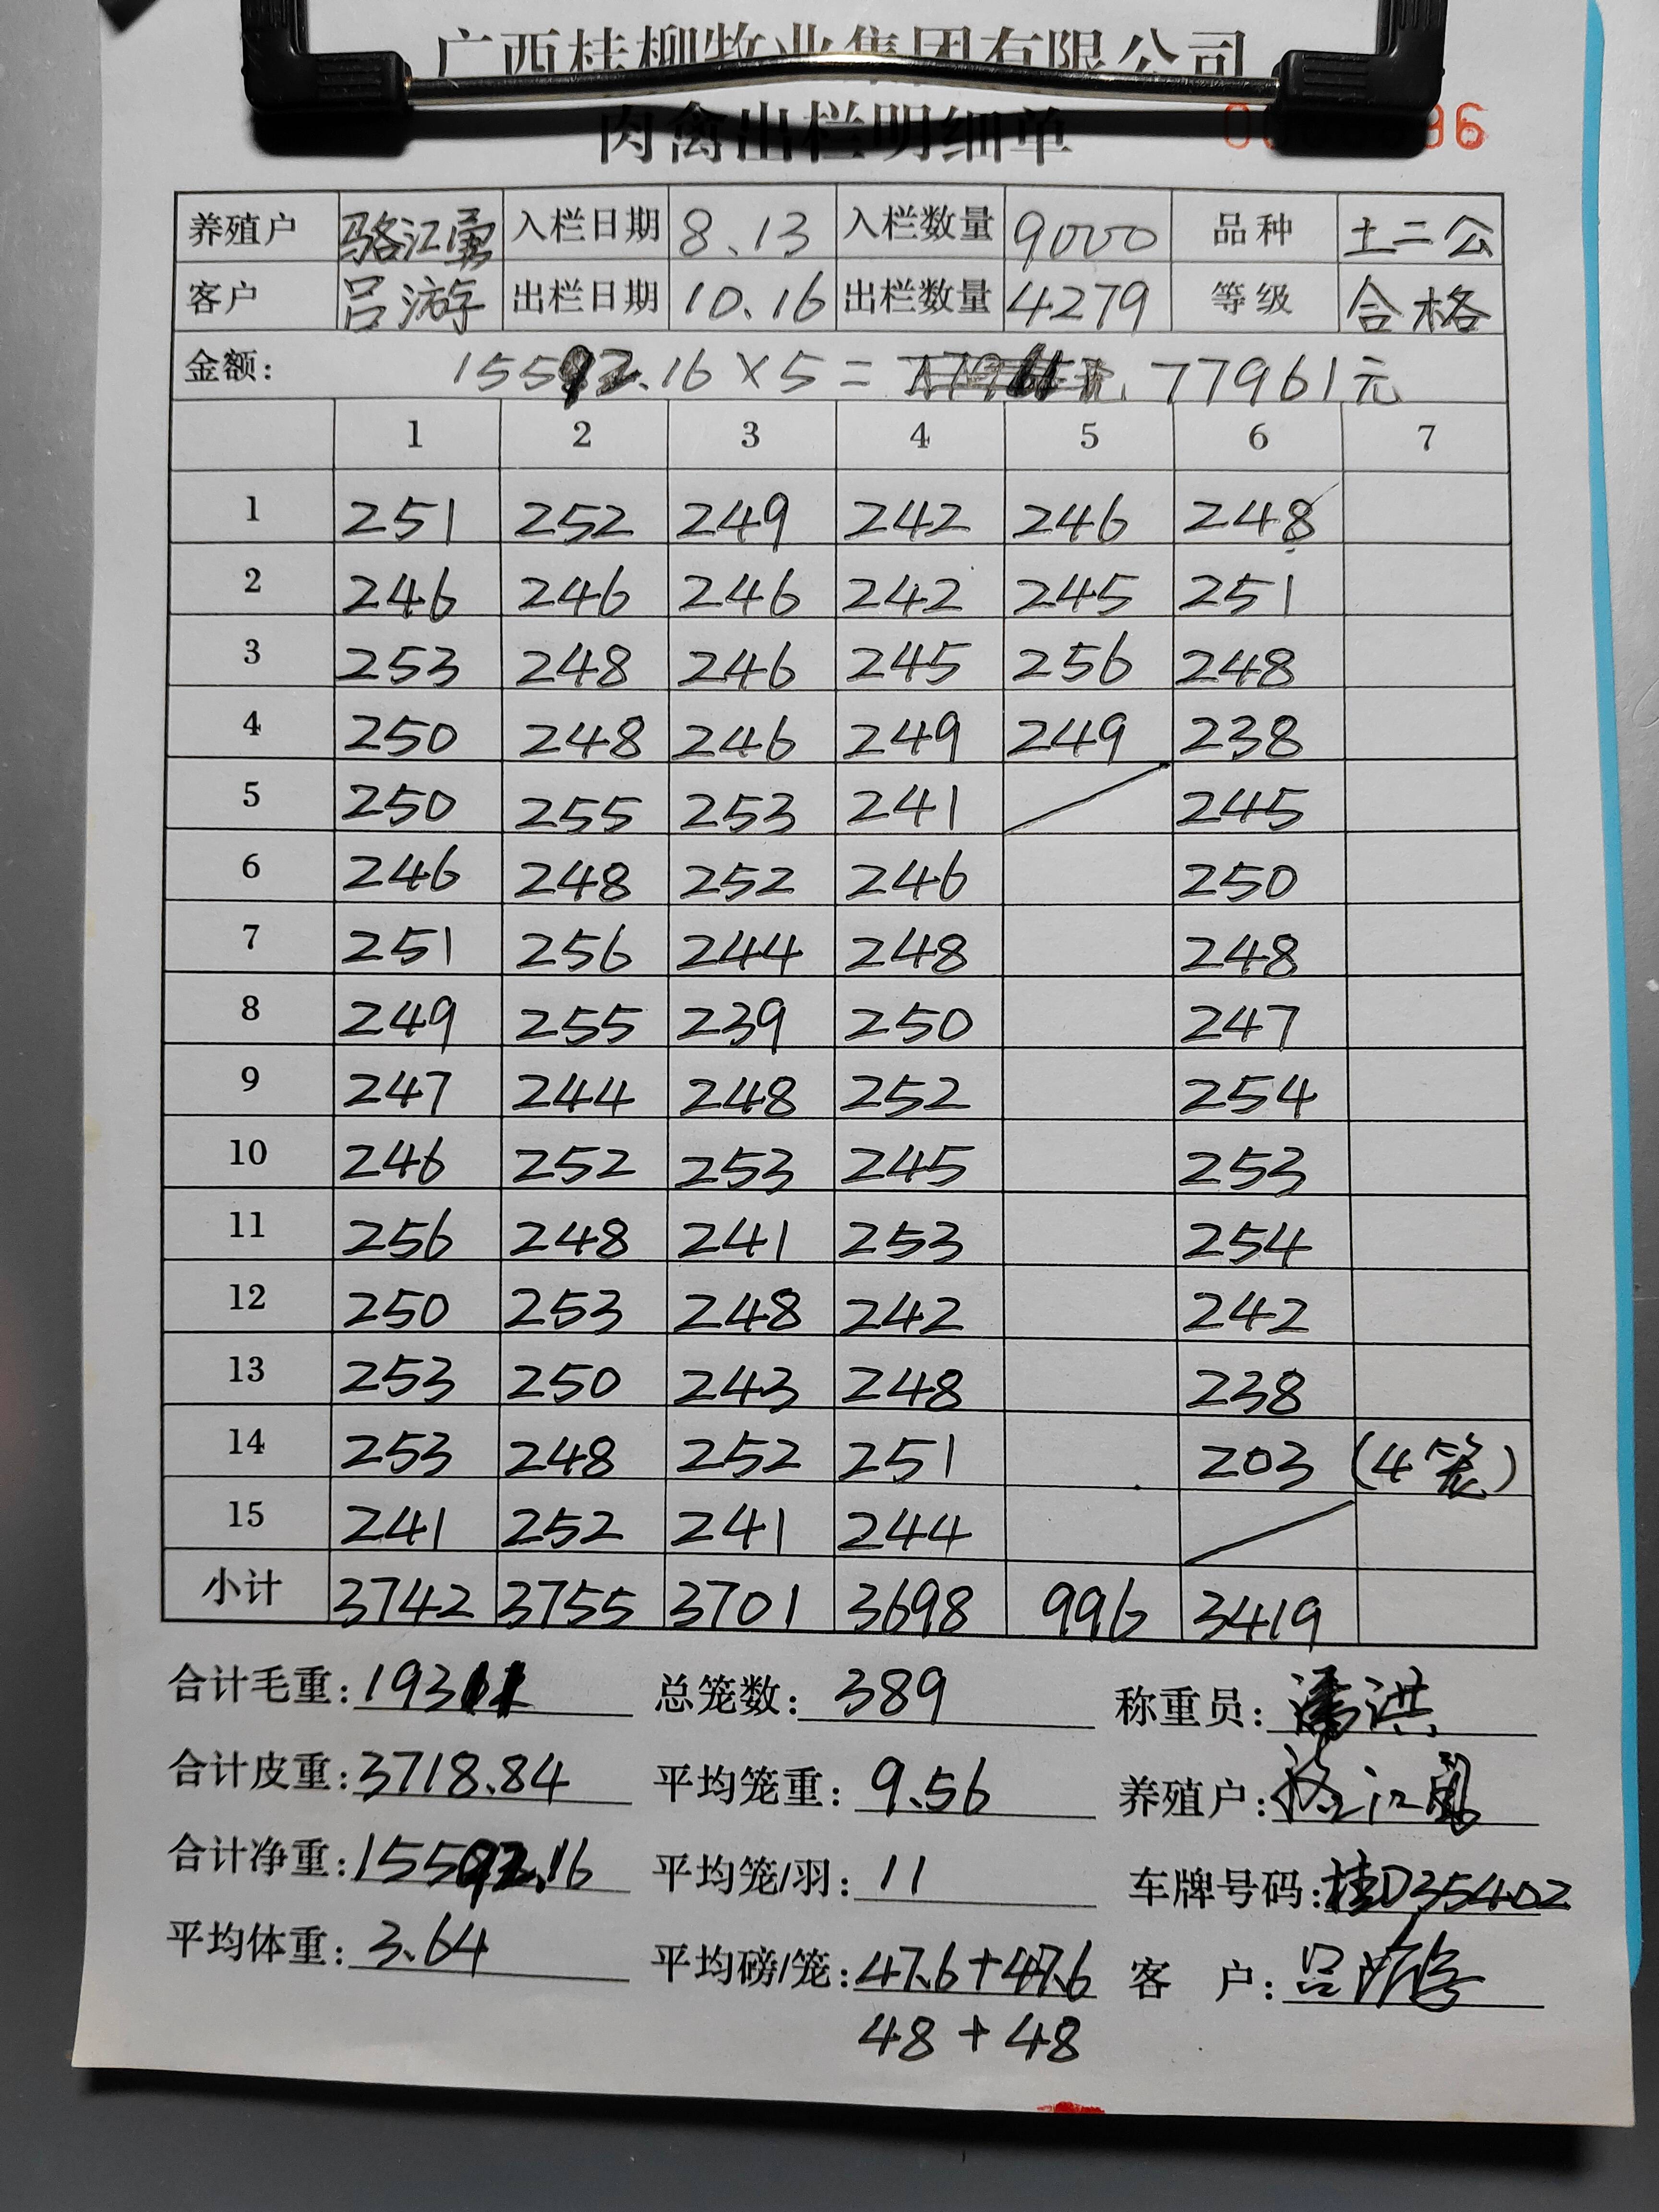 广西桂柳牧业集团有限公司
肉禽出栏明细单
养殖户 骆江勇 入栏日期 8.13 入栏数量 9000 品种 土二公
客户 吕游 出栏日期 10.16 出栏数量 4279 等级 合格
金额: 15592.16×5= 77961元
1 2 3 4 5 6 7
1 251 252 249 242 246 248
2 246 246 246 242 245 251
3 253 248 246 245 256 248
4 250 248 246 249 249 238
5 250 255 253 241 245
6 246 248 252 246 250
7 251 256 244 248 248
8 249 255 239 250 247
9 247 244 248 252 254
10 246 252 253 245 253
11 256 248 241 253 254
12 250 253 248 242 242
13 253 250 243 248 238
14 253 248 252 251 203 (4笼)
15 241 252 241 244
小计 3742 3755 3701 3698 996 3419
合计毛重: 19311 总笼数: 389 称重员: 潘洪
合计皮重: 3718.84 平均笼重: 9.56 养殖户: 骆江勇
合计净重: 15592.16 平均笼/羽: 11 车牌号码: 桂D35402
平均体重: 3.64 平均磅/笼: 47.6+47.6 客 户: 吕游
48+48